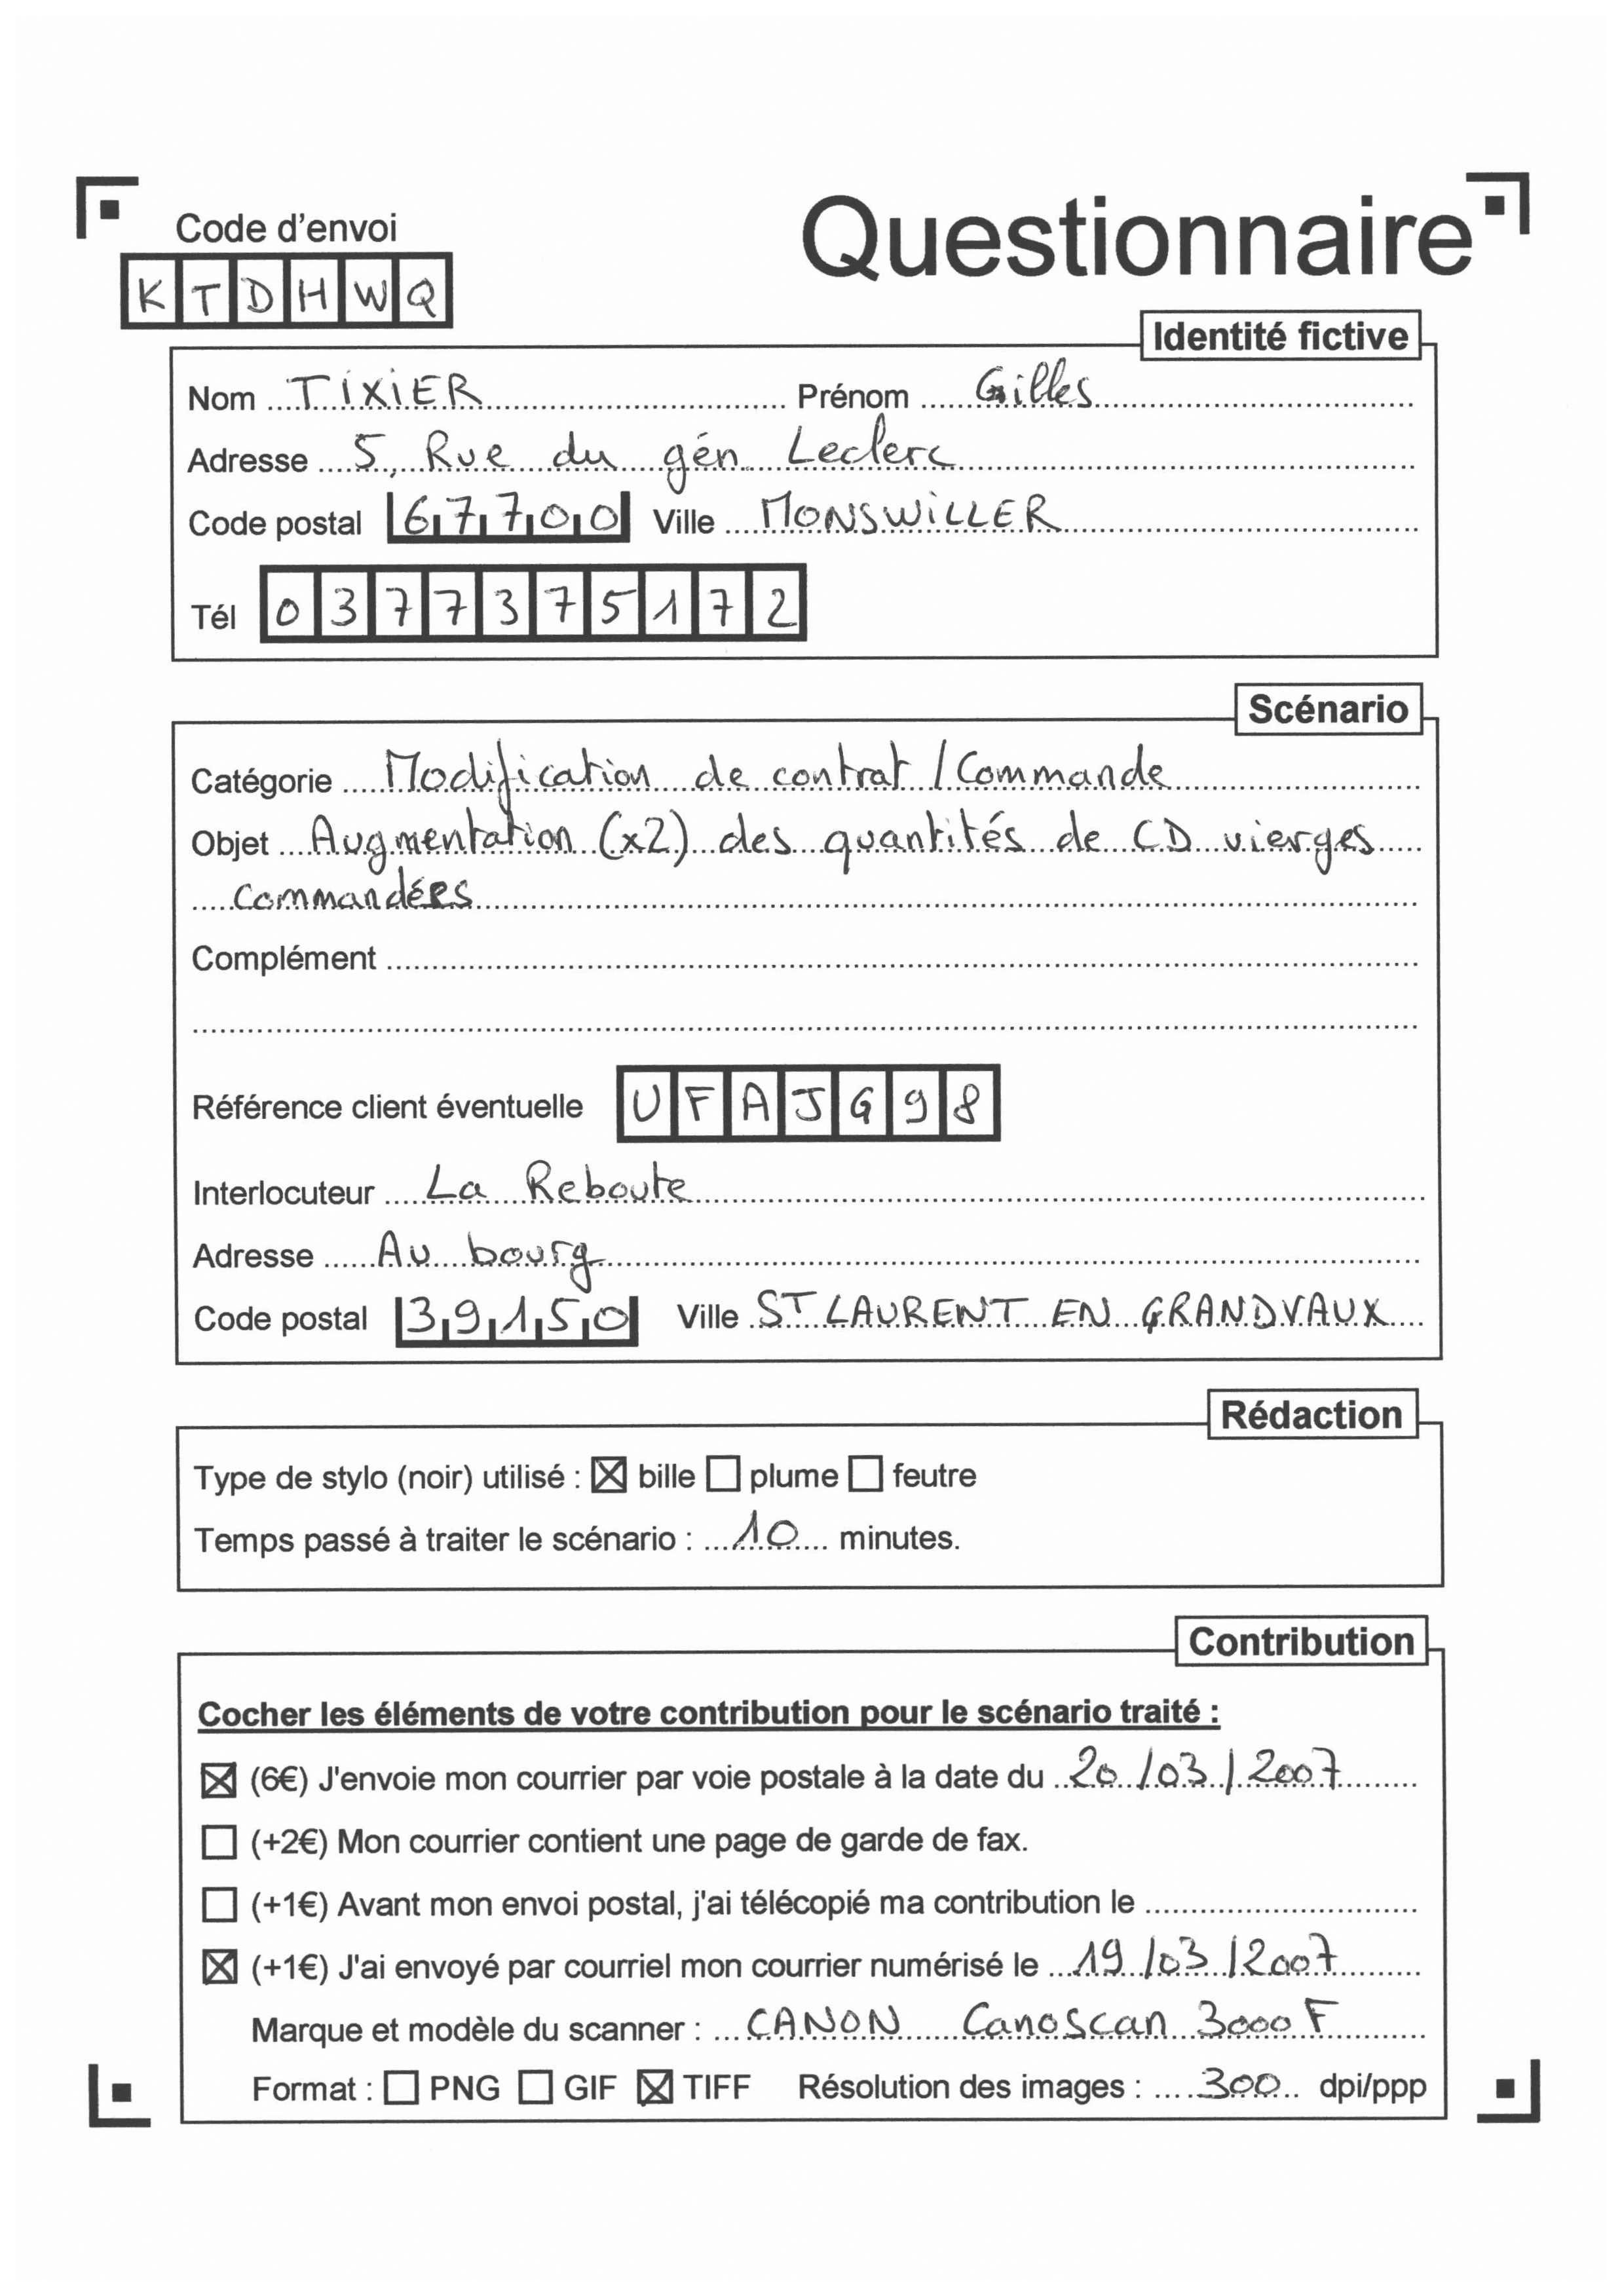 Questionnaire
Code d'envoi
KTDHWQ
Identité fictive
Nom TIXIER Prénom Gilles
Adresse 5, Rue du gén Leclerc
Code postal 67700 Ville MONSWILLER
Tél 0377375172
Scénario
Catégorie Modification de contrat / Commande
Objet Augmentation (x2) des quantités de CD vierges
commandées
Complément
Référence client éventuelle UFAJG98
Interlocuteur La Reboute
Adresse Au bourg
Code postal 39150 Ville ST LAURENT EN GRANDVAUX
Rédaction
Type de stylo (noir) utilisé : ☒ bille ☐ plume ☐ feutre
Temps passé à traiter le scénario : 10 minutes.
Contribution
Cocher les éléments de votre contribution pour le scénario traité :
☒ (6€) J'envoie mon courrier par voie postale à la date du 20/03/2007
☐ (+2€) Mon courrier contient une page de garde de fax.
☐ (+1€) Avant mon envoi postal, j'ai télécopié ma contribution le
☒ (+1€) J'ai envoyé par courriel mon courrier numérisé le 19/03/2007
Marque et modèle du scanner : CANON Canoscan 3000F
Format : ☐ PNG ☐ GIF ☒ TIFF Résolution des images : 300 dpi/ppp